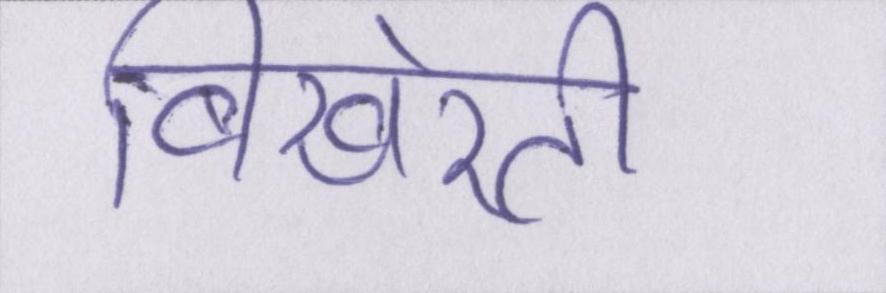 बिखेरती